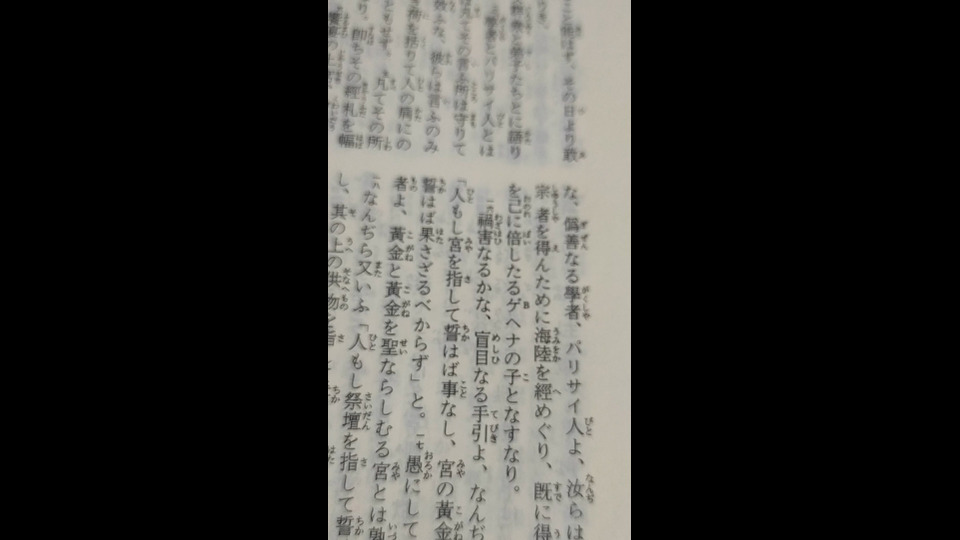 こと能はず、その日より敢
群衆と弟子たちとに語り
學者とパリサイ人とは
凡てその言ふ所は守りて
效ふな、彼らは言ふのみ
荷を括りて人の肩にの
ともせず。凡てその所
即ちその經札を幅
な、僞善なる學者、パリサイ人よ、汝らは
宗者を得んために海陸を經めぐり、既に得
を己に倍したるゲヘナの子となすなり。
一六禍害なるかな、盲目なる手引よ、なんぢ
「人もし宮を指して誓はば事なし、宮の黄金
誓はば果さざるべからず」と。一七愚にして
者よ、黄金と黄金を聖ならしむる宮とは孰
一八なんぢら又いふ「人もし祭壇を指して誓
し、其の上の供物を指